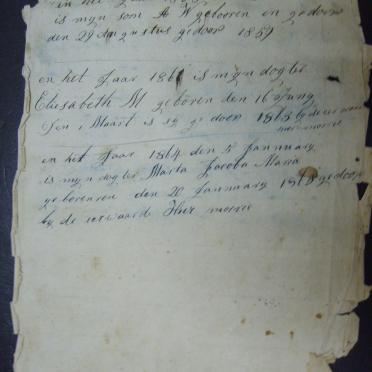 in het
is myn som A W gebooren en gedoop
den 29 daugustus gedoop 1859
en het Jaar 186 is myn dogter
Elisabeth M geboren den 16 Juny
den 1 Maart is sy ge doop 1863 by de eer waar
en het Jaar 1864 den 5 Jannuary
is myn dogter Marta Jacoba Maria
geborenen den 20 Jannuary 1868 gedoop
by de eerwaarde Heer morree